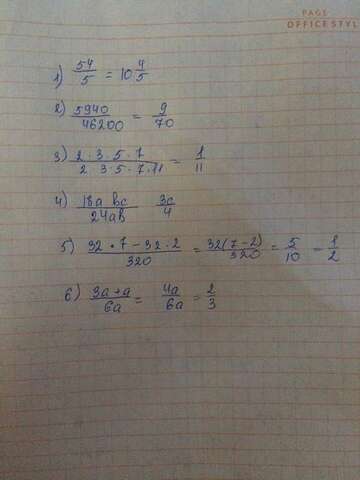 PAGE
OFFICE STYL
1) 54/5 = 10 4/5
2) 5940/46200 = 9/70
3) 2·3·5·7/2 3 5·7·11 = 1/11
4) 18a bc/24ab 3c/4
5) 32·7-32·2/320 = 32(7-2)/320 = 5/10 = 1/2
6) 3a+a/6a = 4a/6a = 2/3